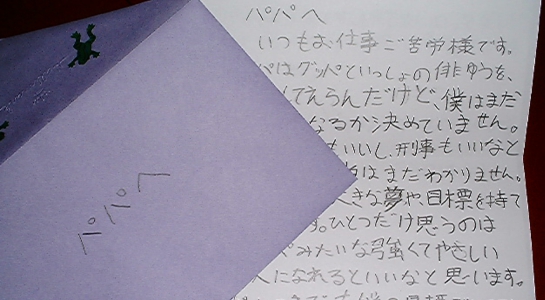 パパへ
いつもお仕事ご苦労様です。
パはグッパといっしょの俳ゆうを、
てえらんだけど、僕はまだ
なるか決めていません。
もいいし、刑事もいいなと
はまだわかりません。
きな夢や目標を持て
す。ひとつだけ思うのは
みたいな強くてやさしい
人になれるといいなと思います。
パパへ